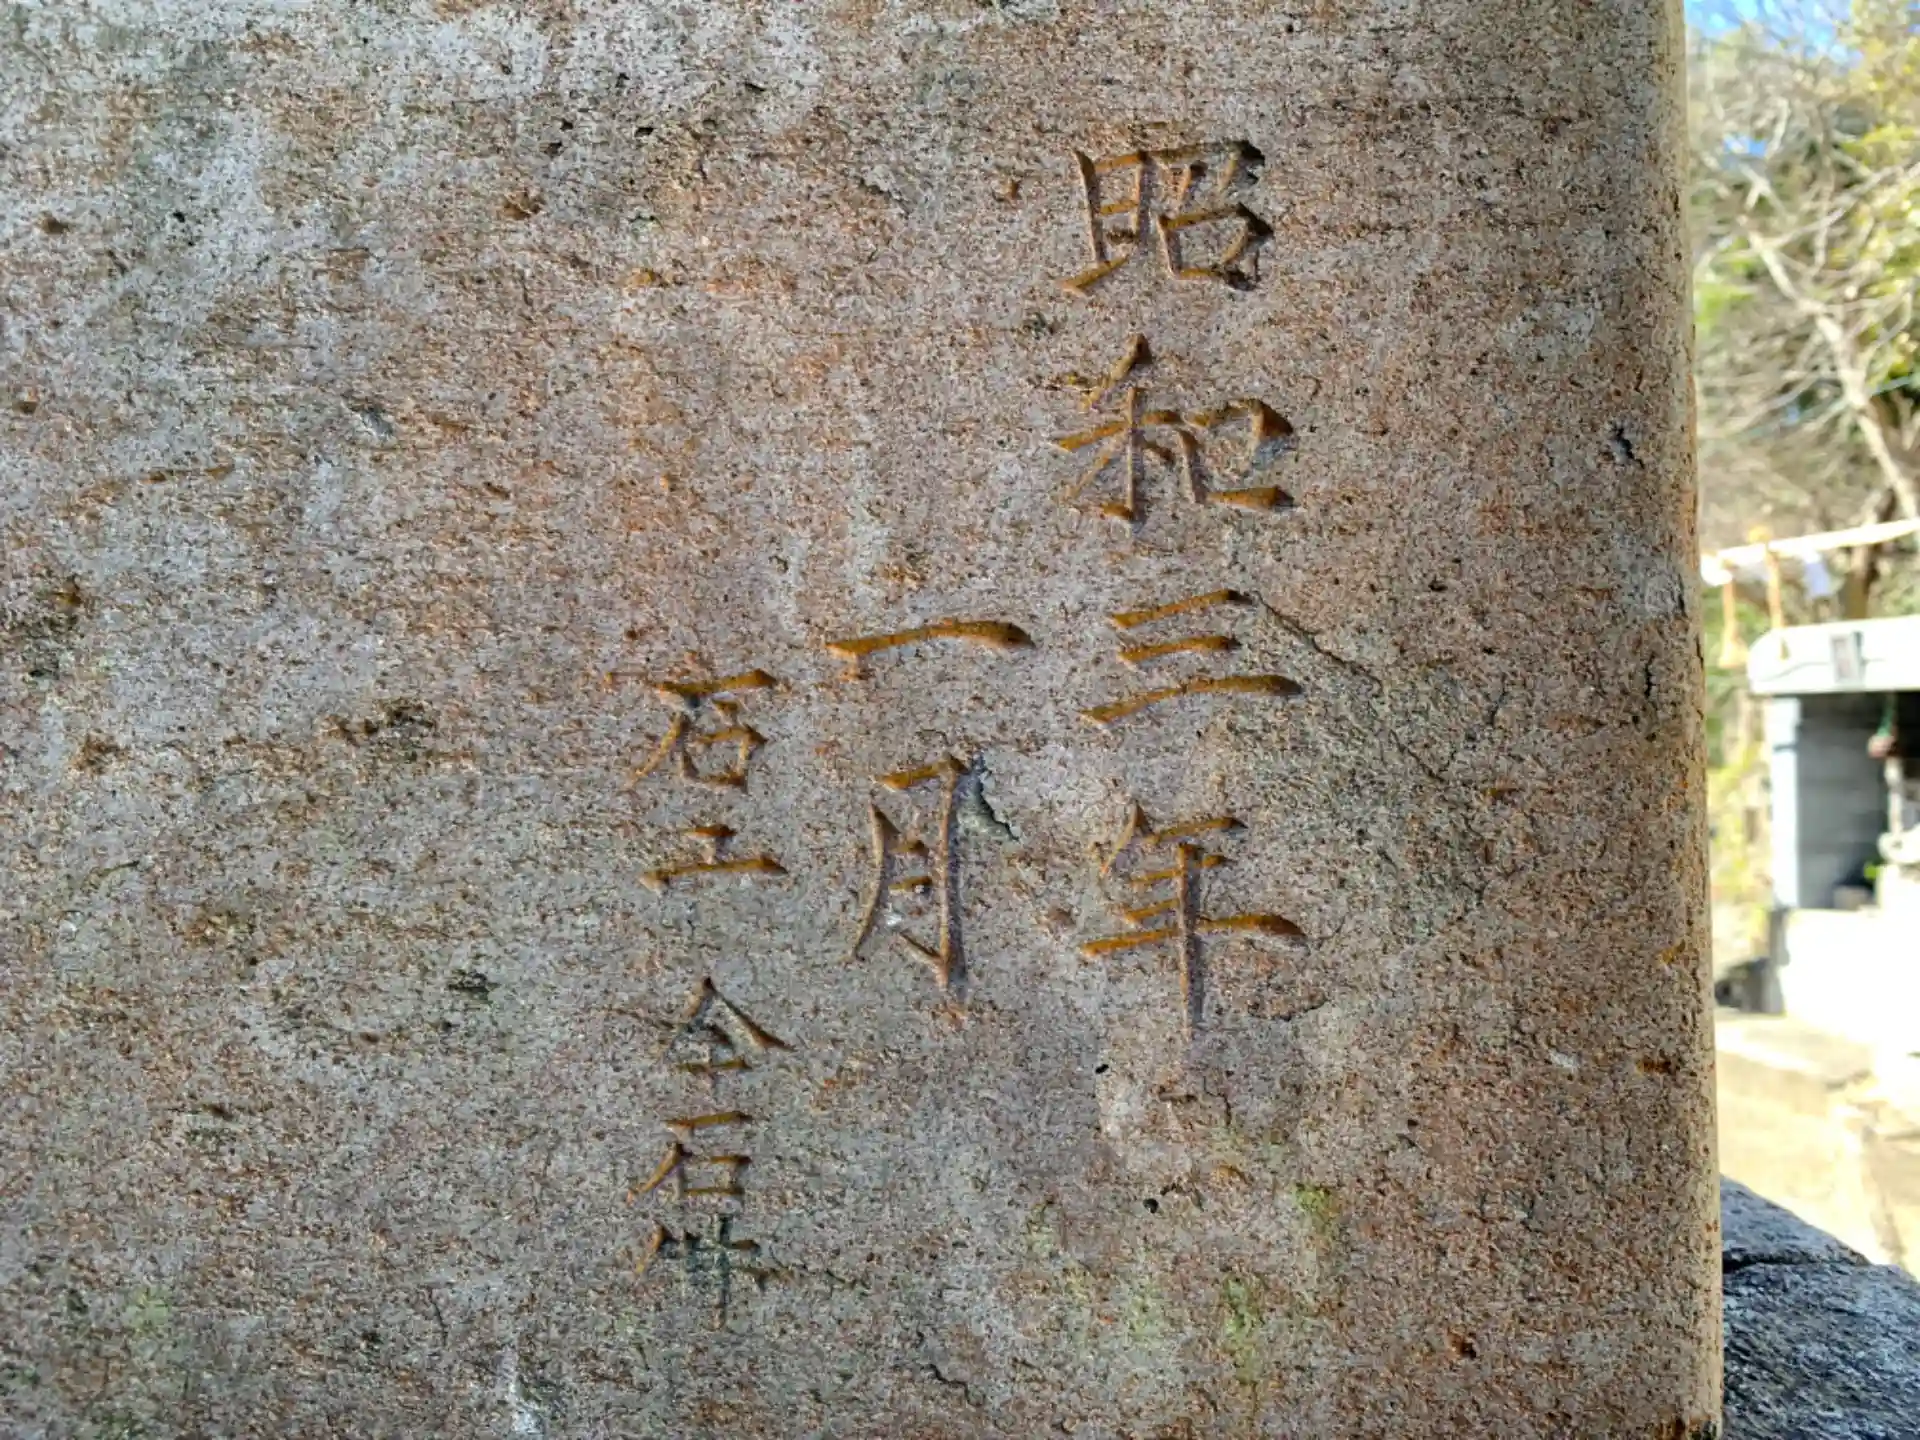 昭和三年
一月
石工 今石